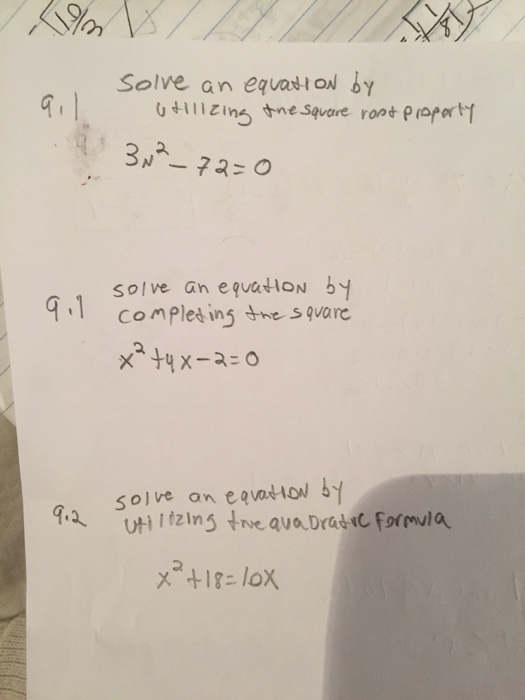 19/3
Solve an equation by
9.1 utilizing the square root property
3N² - 72 = 0
solve an equation by
9.1 completing the square
x² + 4x - 2 = 0
solve an equation by
9.2 utilizing the quadratic formula
x² + 18 = 10x